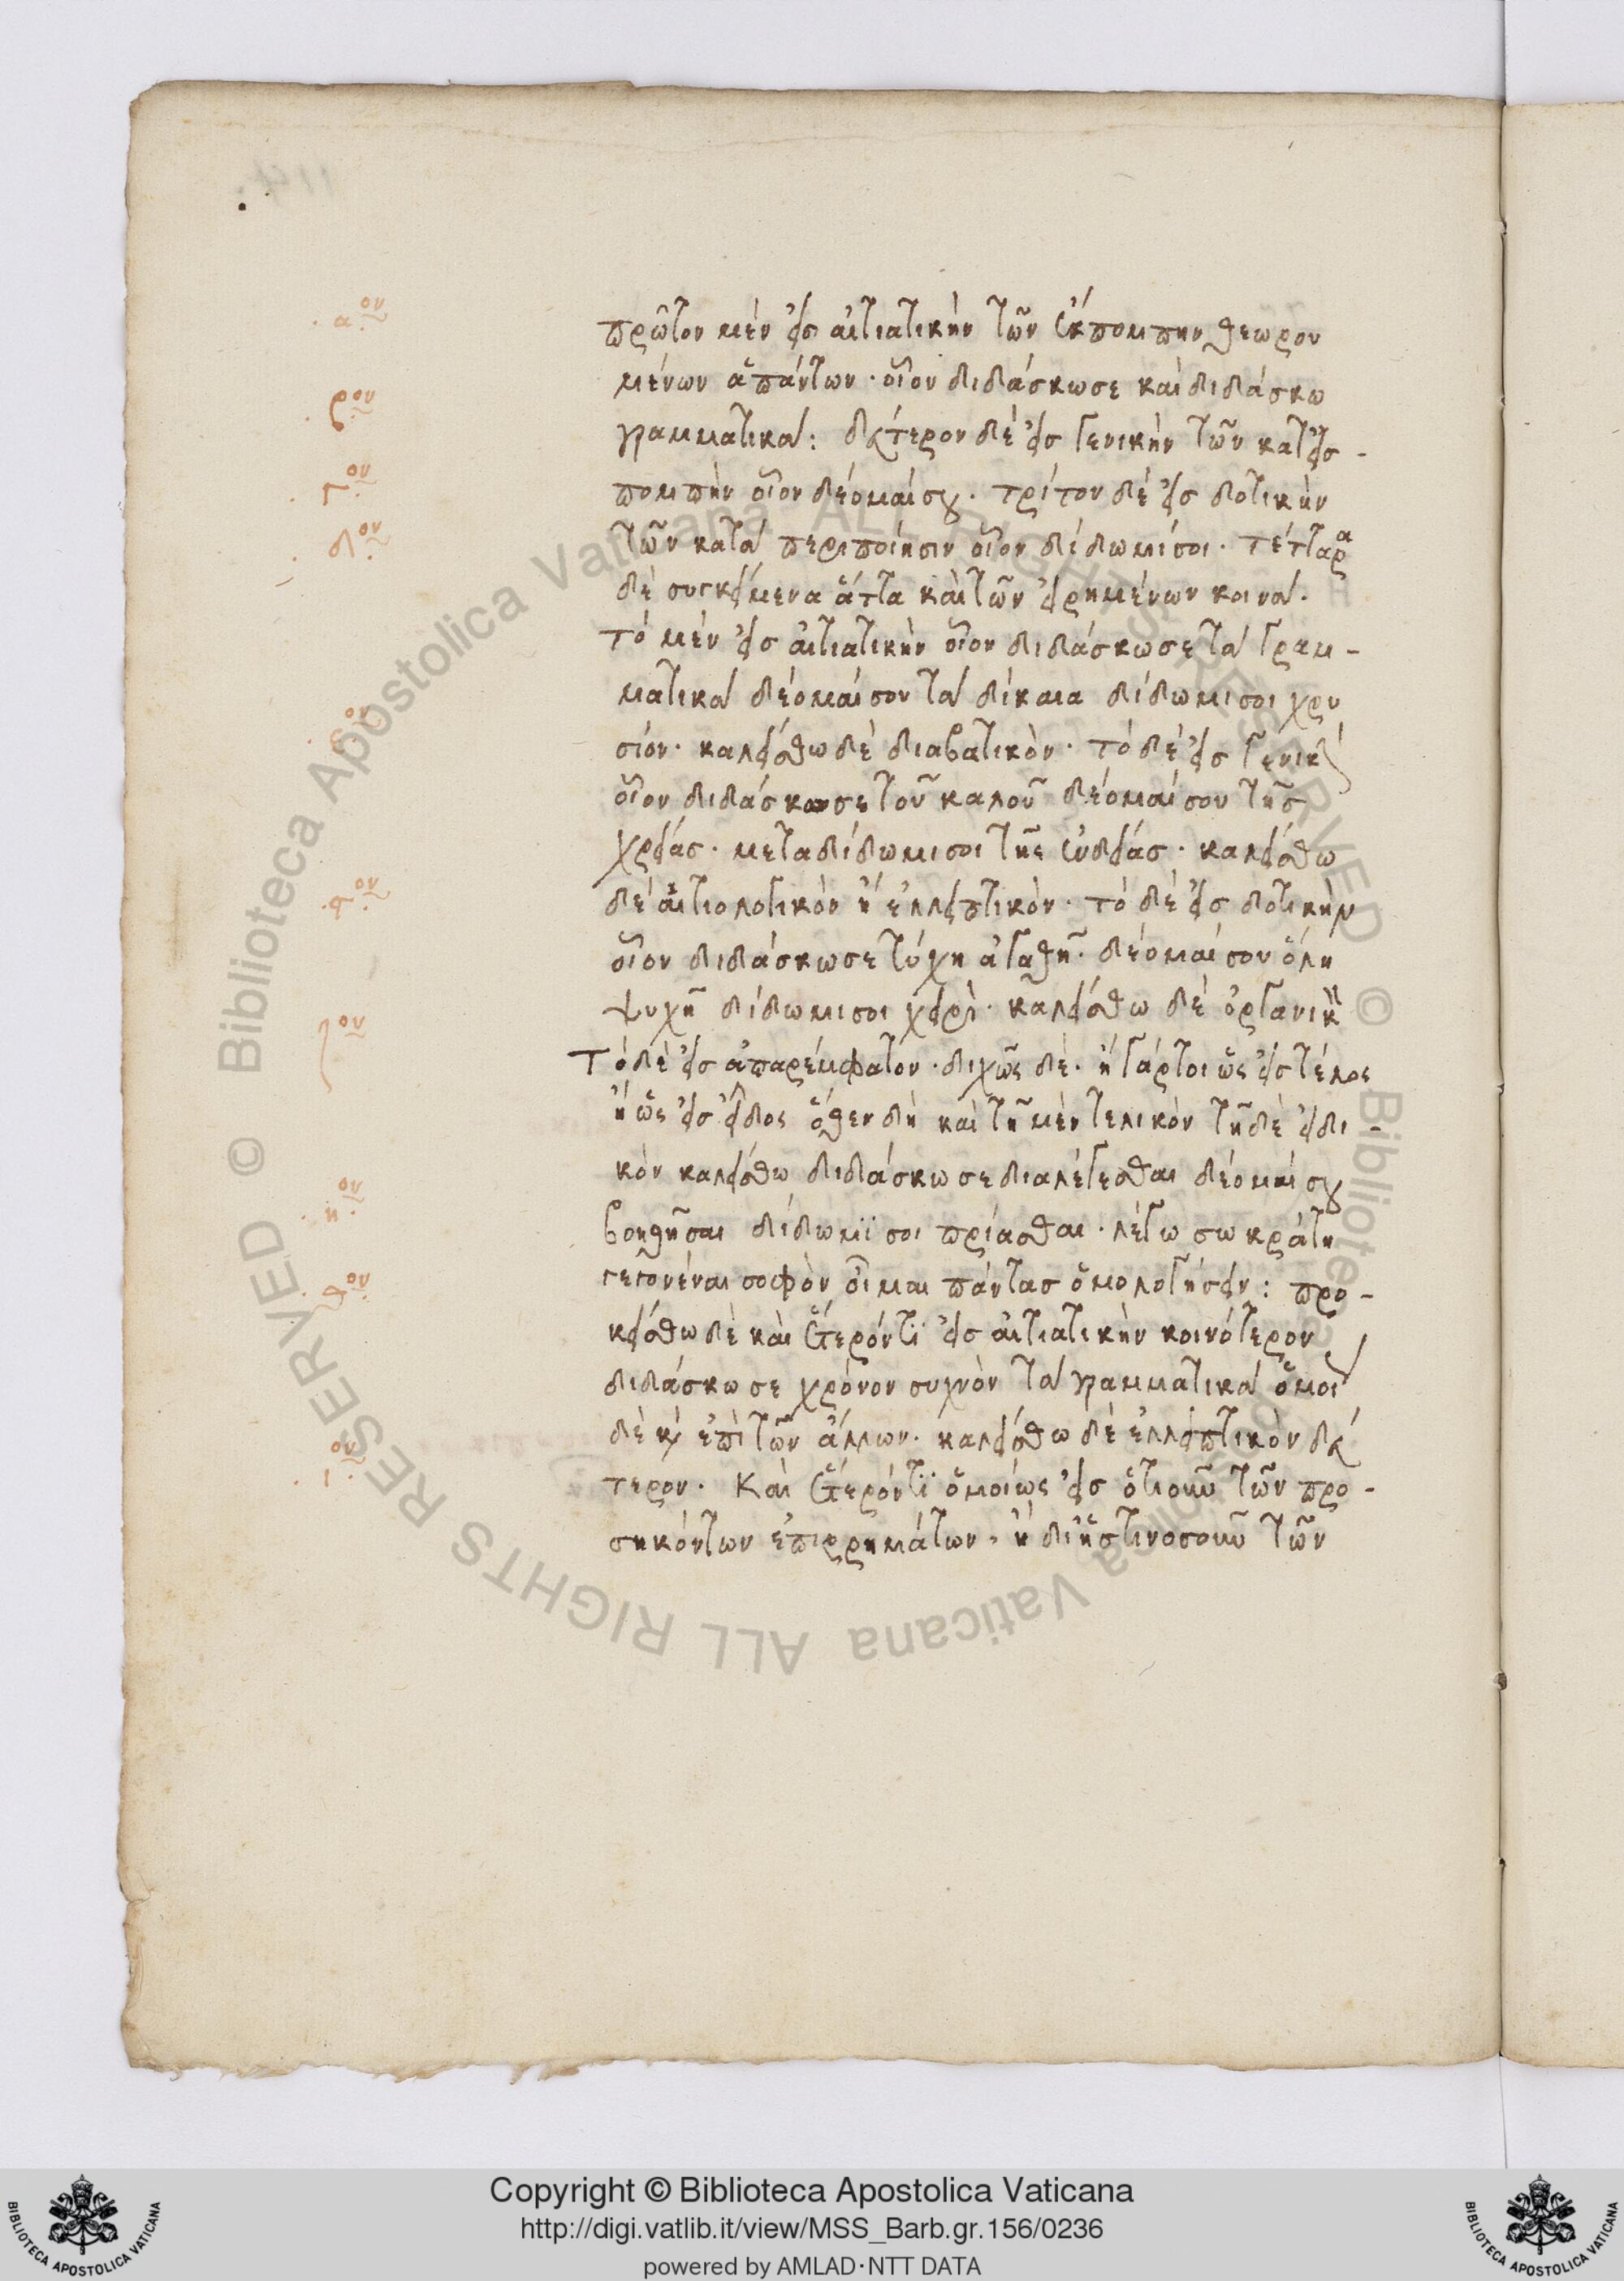 .α.ον
πρῶτον μὲν εἰς αἰτιατικὴν τῶν ἐκπομπὴν θεωρου
μένων ἁπάντων· οἷον διδάσκωσε καὶ διδάσκω
.β.ον
γραμματικά: δεύτερον δὲ εἰς γενικὴν τῶν κατ εἰσ-
.γ.ον
πομπὴν οἷον δέομαί σου. τρίτον δὲ εἰς δοτικὴν
.δ.ον
τῶν κατὰ περιποίησιν οἷον δίδωμί σοι. τέτταρα
δὲ συγκείμενα ἄττα καὶ τῶν εἰρημένων κοινά.
τὸ μὲν εἰς αἰτιατικὴν οἷον διδάσκω σε τὰ γραμ-
ματικὰ δέομαί σου τὰ δίκαια δίδωμι σοι χρυ
.ε.ον
σίον. καλείσθω δὲ διαβατικὸν. τὸ δὲ εἰς γενικ
οἷον διδάσκω σε τοῦ καλοῦ δέομαί σου τῆς
χρείας. μεταδίδωμι σοι τῆς ἐνδείας. καλείσθω
.ϛ.ον
δὲ αἰτιολογικὸν ἢ ἐλλειπτικὸν. τὸ δὲ εἰς δοτικὴν
οἷον διδάσκω σε τύχη ἀγαθῇ. δέομαί σου ὅλη
.ζ.ον
ψυχῇ δίδωμι σοι χειρὶ. καλείσθω δὲ ὀργανικ
τὸ δὲ εἰς ἀπαρέμφατον. διχῶς δὲ. ἢ γάρτοι ὡς εἰς τέλος
ἢ ὡς εἰς εἶδος ὅθεν δὴ καὶ τῇ μὲν τελικὸν τῇ δὲ εἰδι-
κὸν καλείσθω διδάσκω σε διαλέγεσθαι δέομαί σου
.η.ον
βοηθῆσαι δίδωμί σοι πρίασθαι. λέγω σωκράτη
.θ.ον
γεγονέναι σοφὸν οἶμαι πάντας ὁμολογήσειν: προ-
κείσθω δὲ καὶ ἕτερόν τι εἰς αἰτιατικὴν κοινότερον
διδάσκω σε χρόνον συχνὸν τὰ γραμματικὰ ὁμοί
δὲ καὶ ἐπὶ τῶν ἄλλων. καλείσθω δὲ ἐλλειπτικὸν δεύ
.ι.ον
τερον. Καὶ ἕτερόν τι ὁμοίως εἰς ὁτιοῦν τῶν προ-
σηκόντων ἐπιρρημάτων, ἢ δι ἧστινοσοῦν τῶν
Copyright © Biblioteca Apostolica Vaticana
http://digi.vatlib.it/view/MSS_Barb.gr.156/0236
powered by AMLAD·NTT DATA
BIBLIOTECA APOSTOLICA VATICANA
BIBLIOTECA APOSTOLICA VATICANA
Biblioteca Apostolica Vaticana ALL RIGHTS RESERVED ©
Biblioteca Apostolica Vaticana ALL RIGHTS RESERVED ©